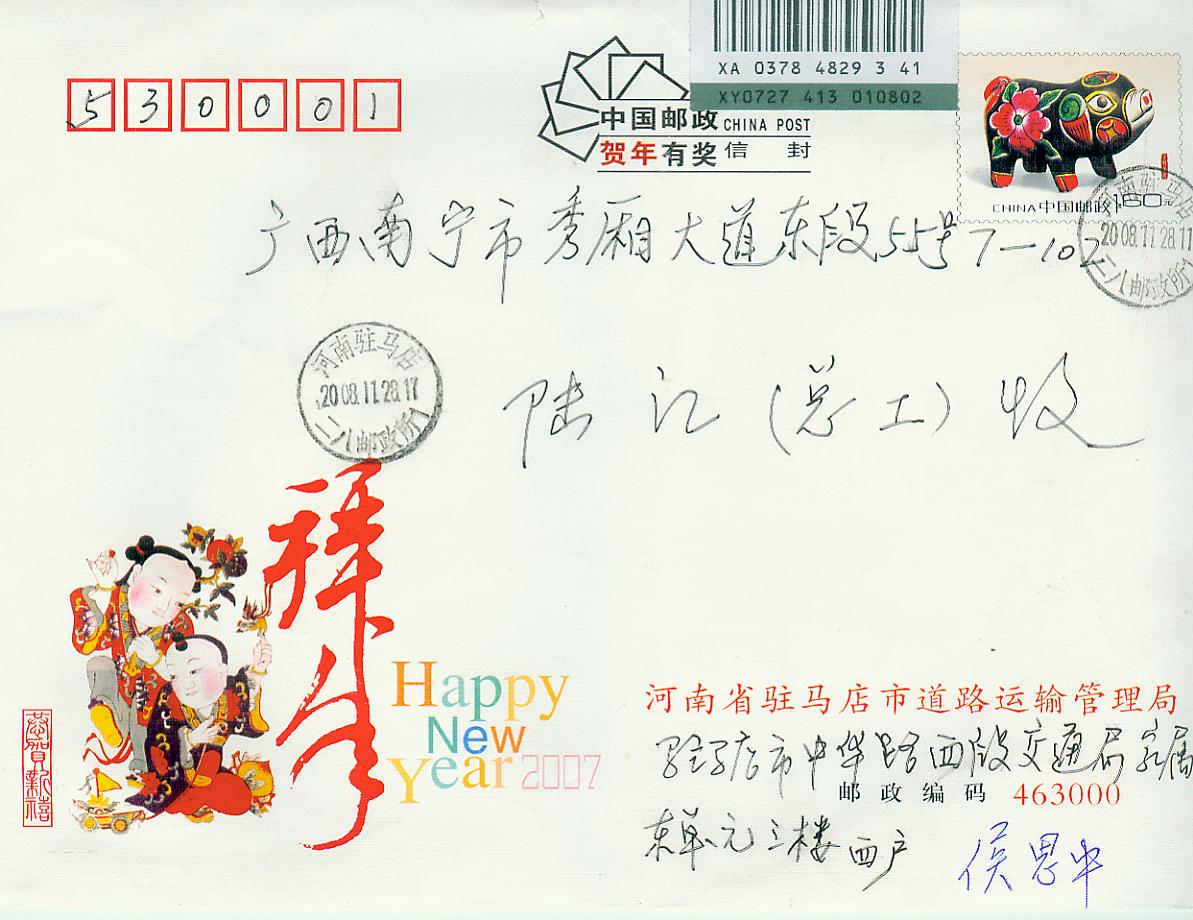 XA 0378 4829 3 41
XY0727 413 010802
530001
中国邮政 CHINA POST
贺年有奖信封
CHINA中国邮政160元
广西南宁市秀厢大道东段55号7-102
河南驻马店
2008.11.28.11
二八邮政所
河南驻马店
2008.11.28.17
二八邮政所
陆江(总工)收
拜年
Happy
New
Year 2007
恭贺新禧
河南省驻马店市道路运输管理局
驻马店市中华路西段交通局家属
邮政编码 463000
东单元三楼西户
侯思中